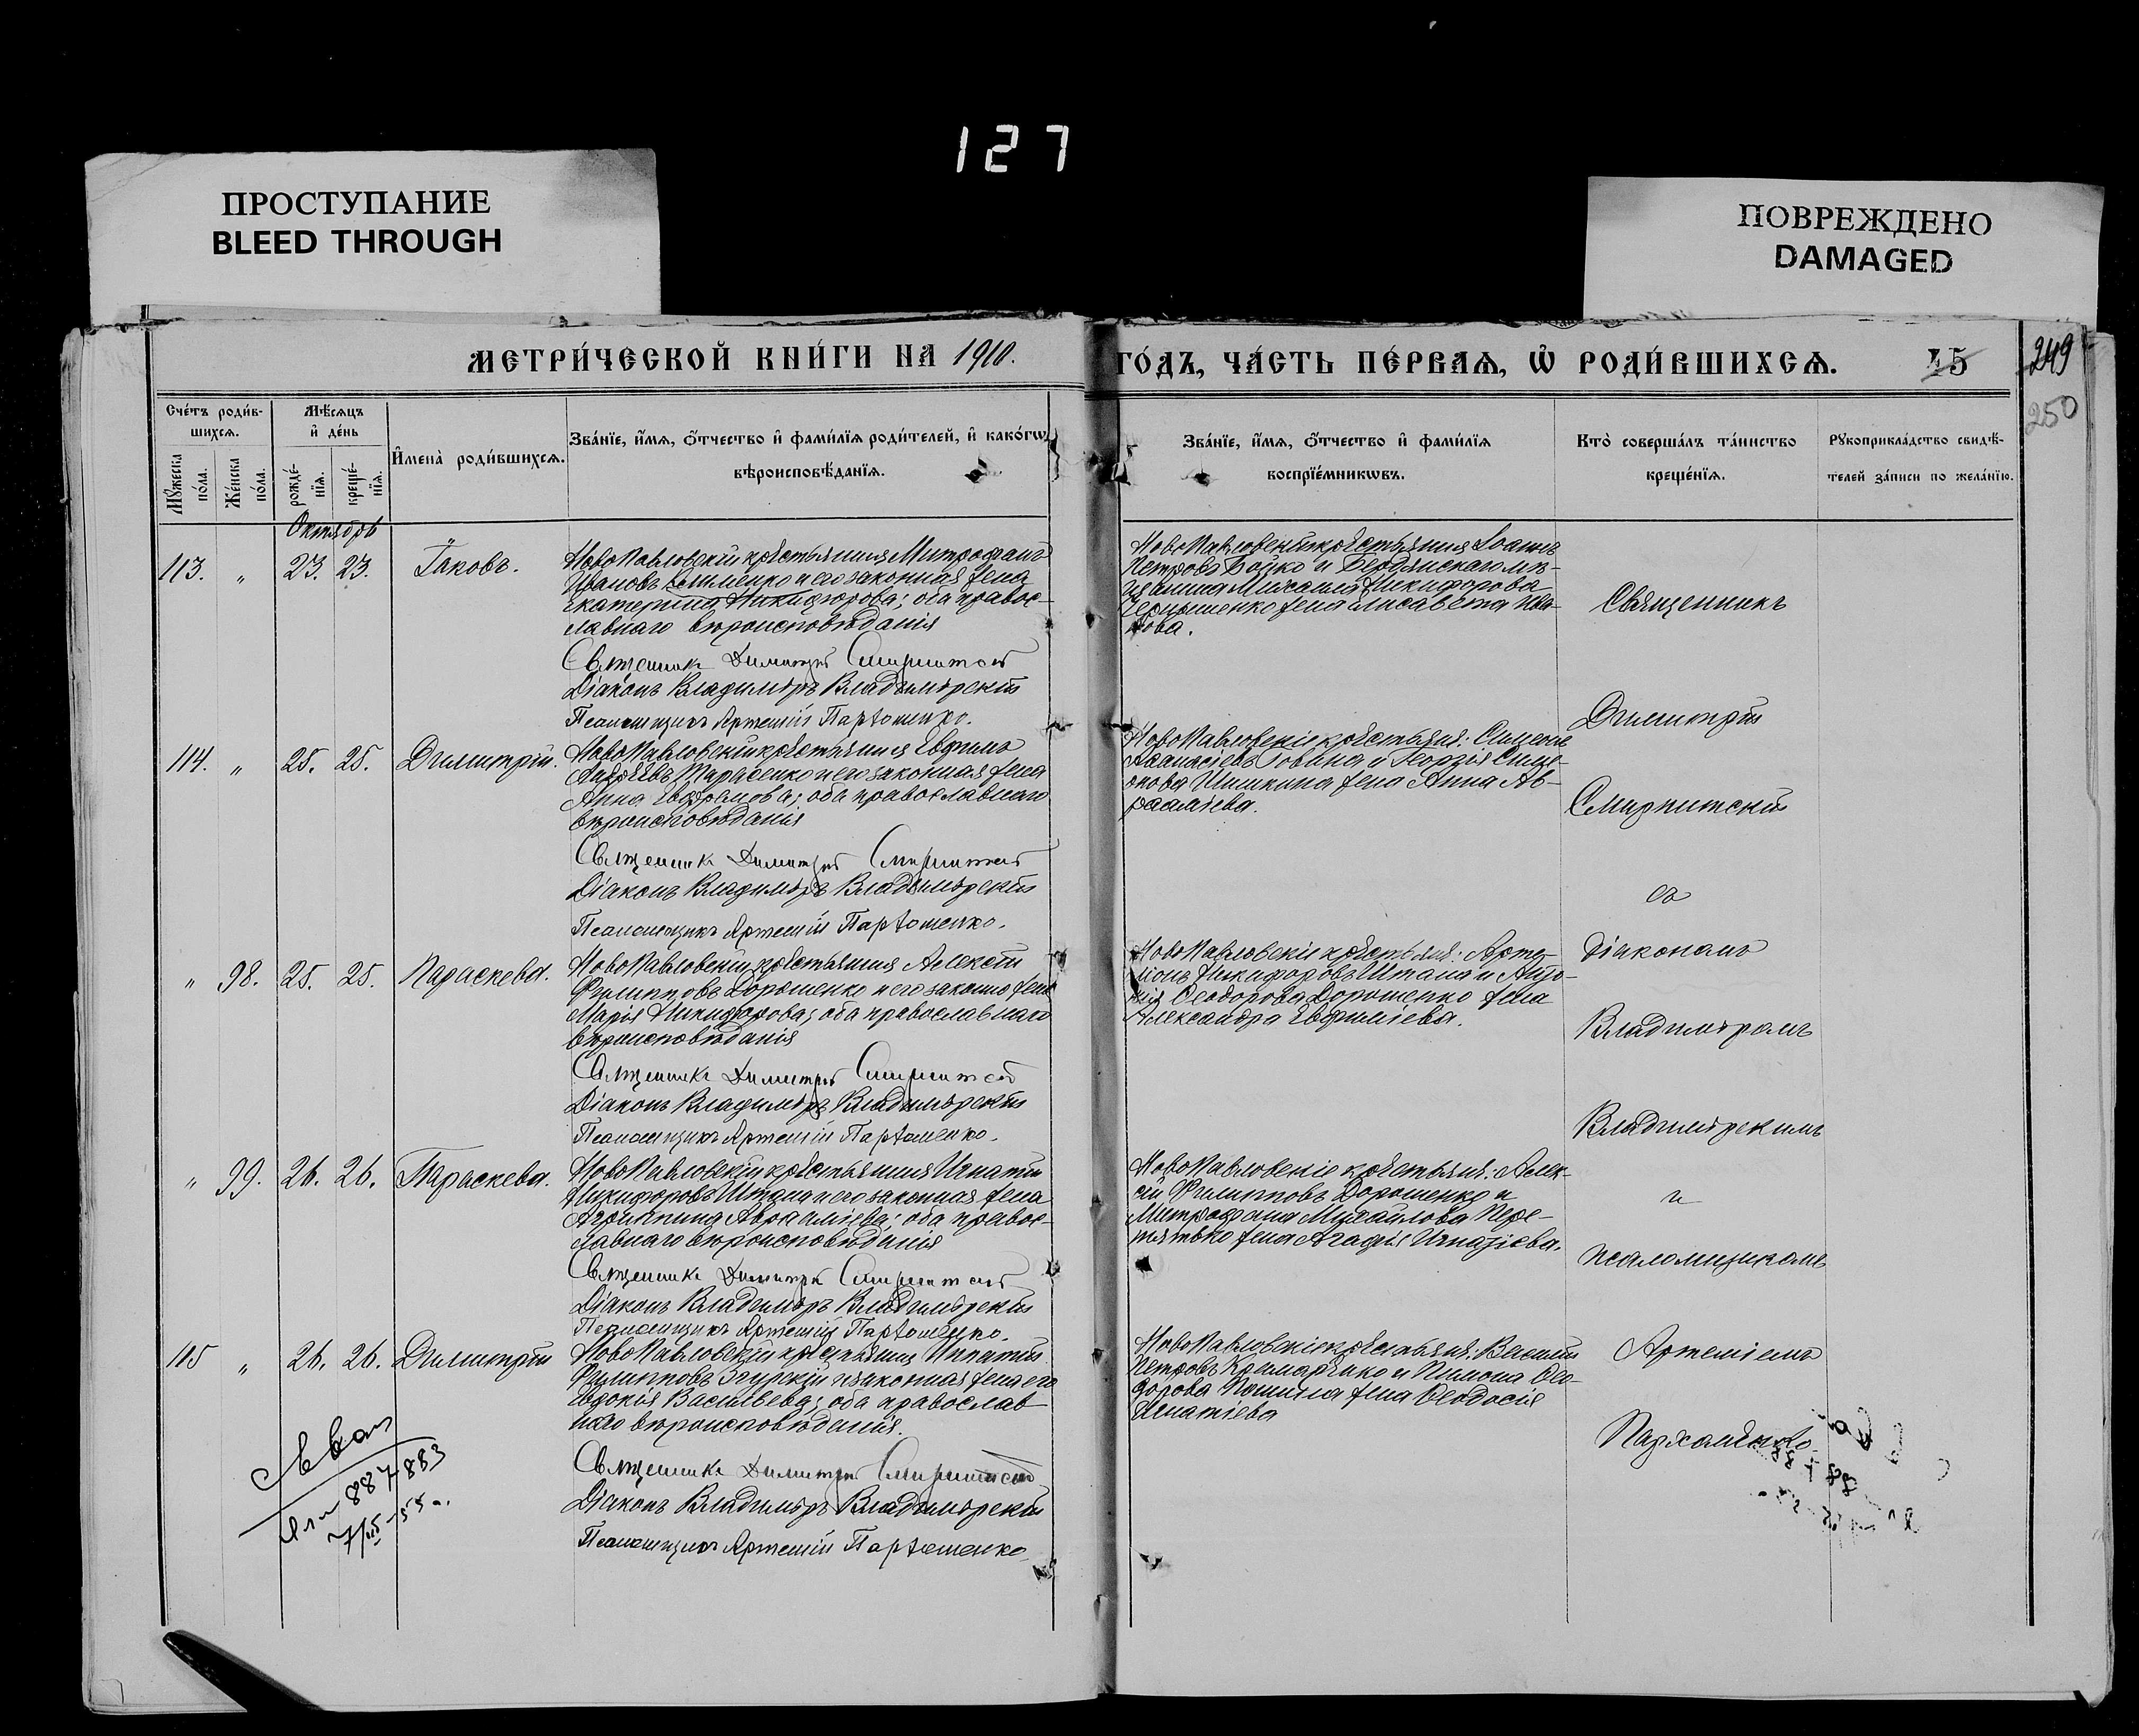 127
ПРОСТУПАНИЕ
BLEED THROUGH
ПОВРЕЖДЕНО
DAMAGED
МЕТРИ́ЧЕСКОЙ КНИ́ГИ НА 1910.
ГО́ДЪ, ЧА́СТЬ ПЕ́РВАЯ, Ѡ҆ РОДИ́ВШИХСЯ.
45
249
250
Сче́тъ роди́в-
шихся.
Мꙋ́жеска по́ла.
Же́нска по́ла.
Мѣ́сяцъ
и҆ де́нь
рожде́-
нїя.
креще́-
нїя.
И҆мена̀ роди́вшихся.
Зва́нїе, и҆́мя, ѻ҆́тчество и҆ фами́лїя роди́телей, и҆ како́гѡ
вѣроисповѣ́данїя.
Зва́нїе, и҆́мя, ѻ҆́тчество и҆ фами́лїя
воспрїе́мникѡвъ.
Кто̀ соверша́лъ та́инство
креще́нїя.
Рꙋкоприкла́дство свидѣ́-
телей за́писи по жела́нїю.
Октябрь
113. " 23. 23. Іаковъ.
НовоПавловскій крестьянинъ Митрофанъ
Ивановъ Клименко и его законная жена
Екатерина Никифорова; оба правос-
лавнаго вѣроисповѣданія
Священникъ Димитрій Смирнитскій
Діаконъ Владиміръ Владимірскій
Псаломщикъ Артемій Пархоменко.
НовоПавловскій крестьянинъ Іоаннъ
Петровъ Бойко и Бердянскаго мѣ-
щанина Михаила Никифорова
жена Елисавета Ива-
нова.
114. " 25. 25. Димитрій.
НовоПавловскій крестьянинъ Евфимъ
Андреевъ Тарасенко и его законная жена
Анна Евфимова; оба православнаго
вѣроисповѣданія
Священникъ Димитрій Смирнитскій
Діаконъ Владиміръ Владимірскій
Псаломщикъ Артемій Пархоменко.
НовоПавловскіе крестьяне: Симеонъ
Аѳанасіевъ и Георгія Симе-
онова Шишкина жена Анна Ав-
рааміева.
" 98. 25. 25. Параскева.
НовоПавловскій крестьянинъ Алексій
Филипповъ Дорошенко и его законн. жена
Марія Никифорова; оба православнаго
вѣроисповѣданія
Священникъ Димитрій Смирнитскій
Діаконъ Владиміръ Владимірскій
Псаломщикъ Артемій Пархоменко.
НовоПавловскіе крестьяне: Арте-
Никифоровъ Штана и
Ѳеодорова Дорошенко жена
Александра Евфиміева.
" 99. 26. 26. Параскева.
НовоПавловскій крестьянинъ Игнатій
Никифоровъ Штана и его законная жена
Агриппина Аврааміева; оба правос-
лавнаго вѣроисповѣданія
Священникъ Димитрій Смирнитскій
Діаконъ Владиміръ Владимірскій
Псаломщикъ Артемій Пархоменко.
НовоПавловскіе крестьяне: Алек-
сій Филипповъ Дорошенко и
Митрофана Михайлова Пере-
тятько жена Агафія Игнатіева.
115 " 26. 26. Димитрій
НовоПавловскій крестьянинъ Игнатій
Филипповъ Згурскій и законная жена его
Евдокія Васильева; оба православ-
наго вѣроисповѣданія.
Священникъ Димитрій Смирнитскій
Діаконъ Владиміръ Владимірскій
Псаломщикъ Артемій Пархоменко.
НовоПавловскіе крестьяне: Василій
Петровъ Крамаренко и Пимона Ѳео-
дорова жена Ѳеодосія
Игнатіева
Священникъ
Димитрій
Смирнитскій
съ
Діакономъ
Владиміромъ
Владимірскимъ
и
псаломщикомъ
Артеміемъ
Пархоменко.
887883